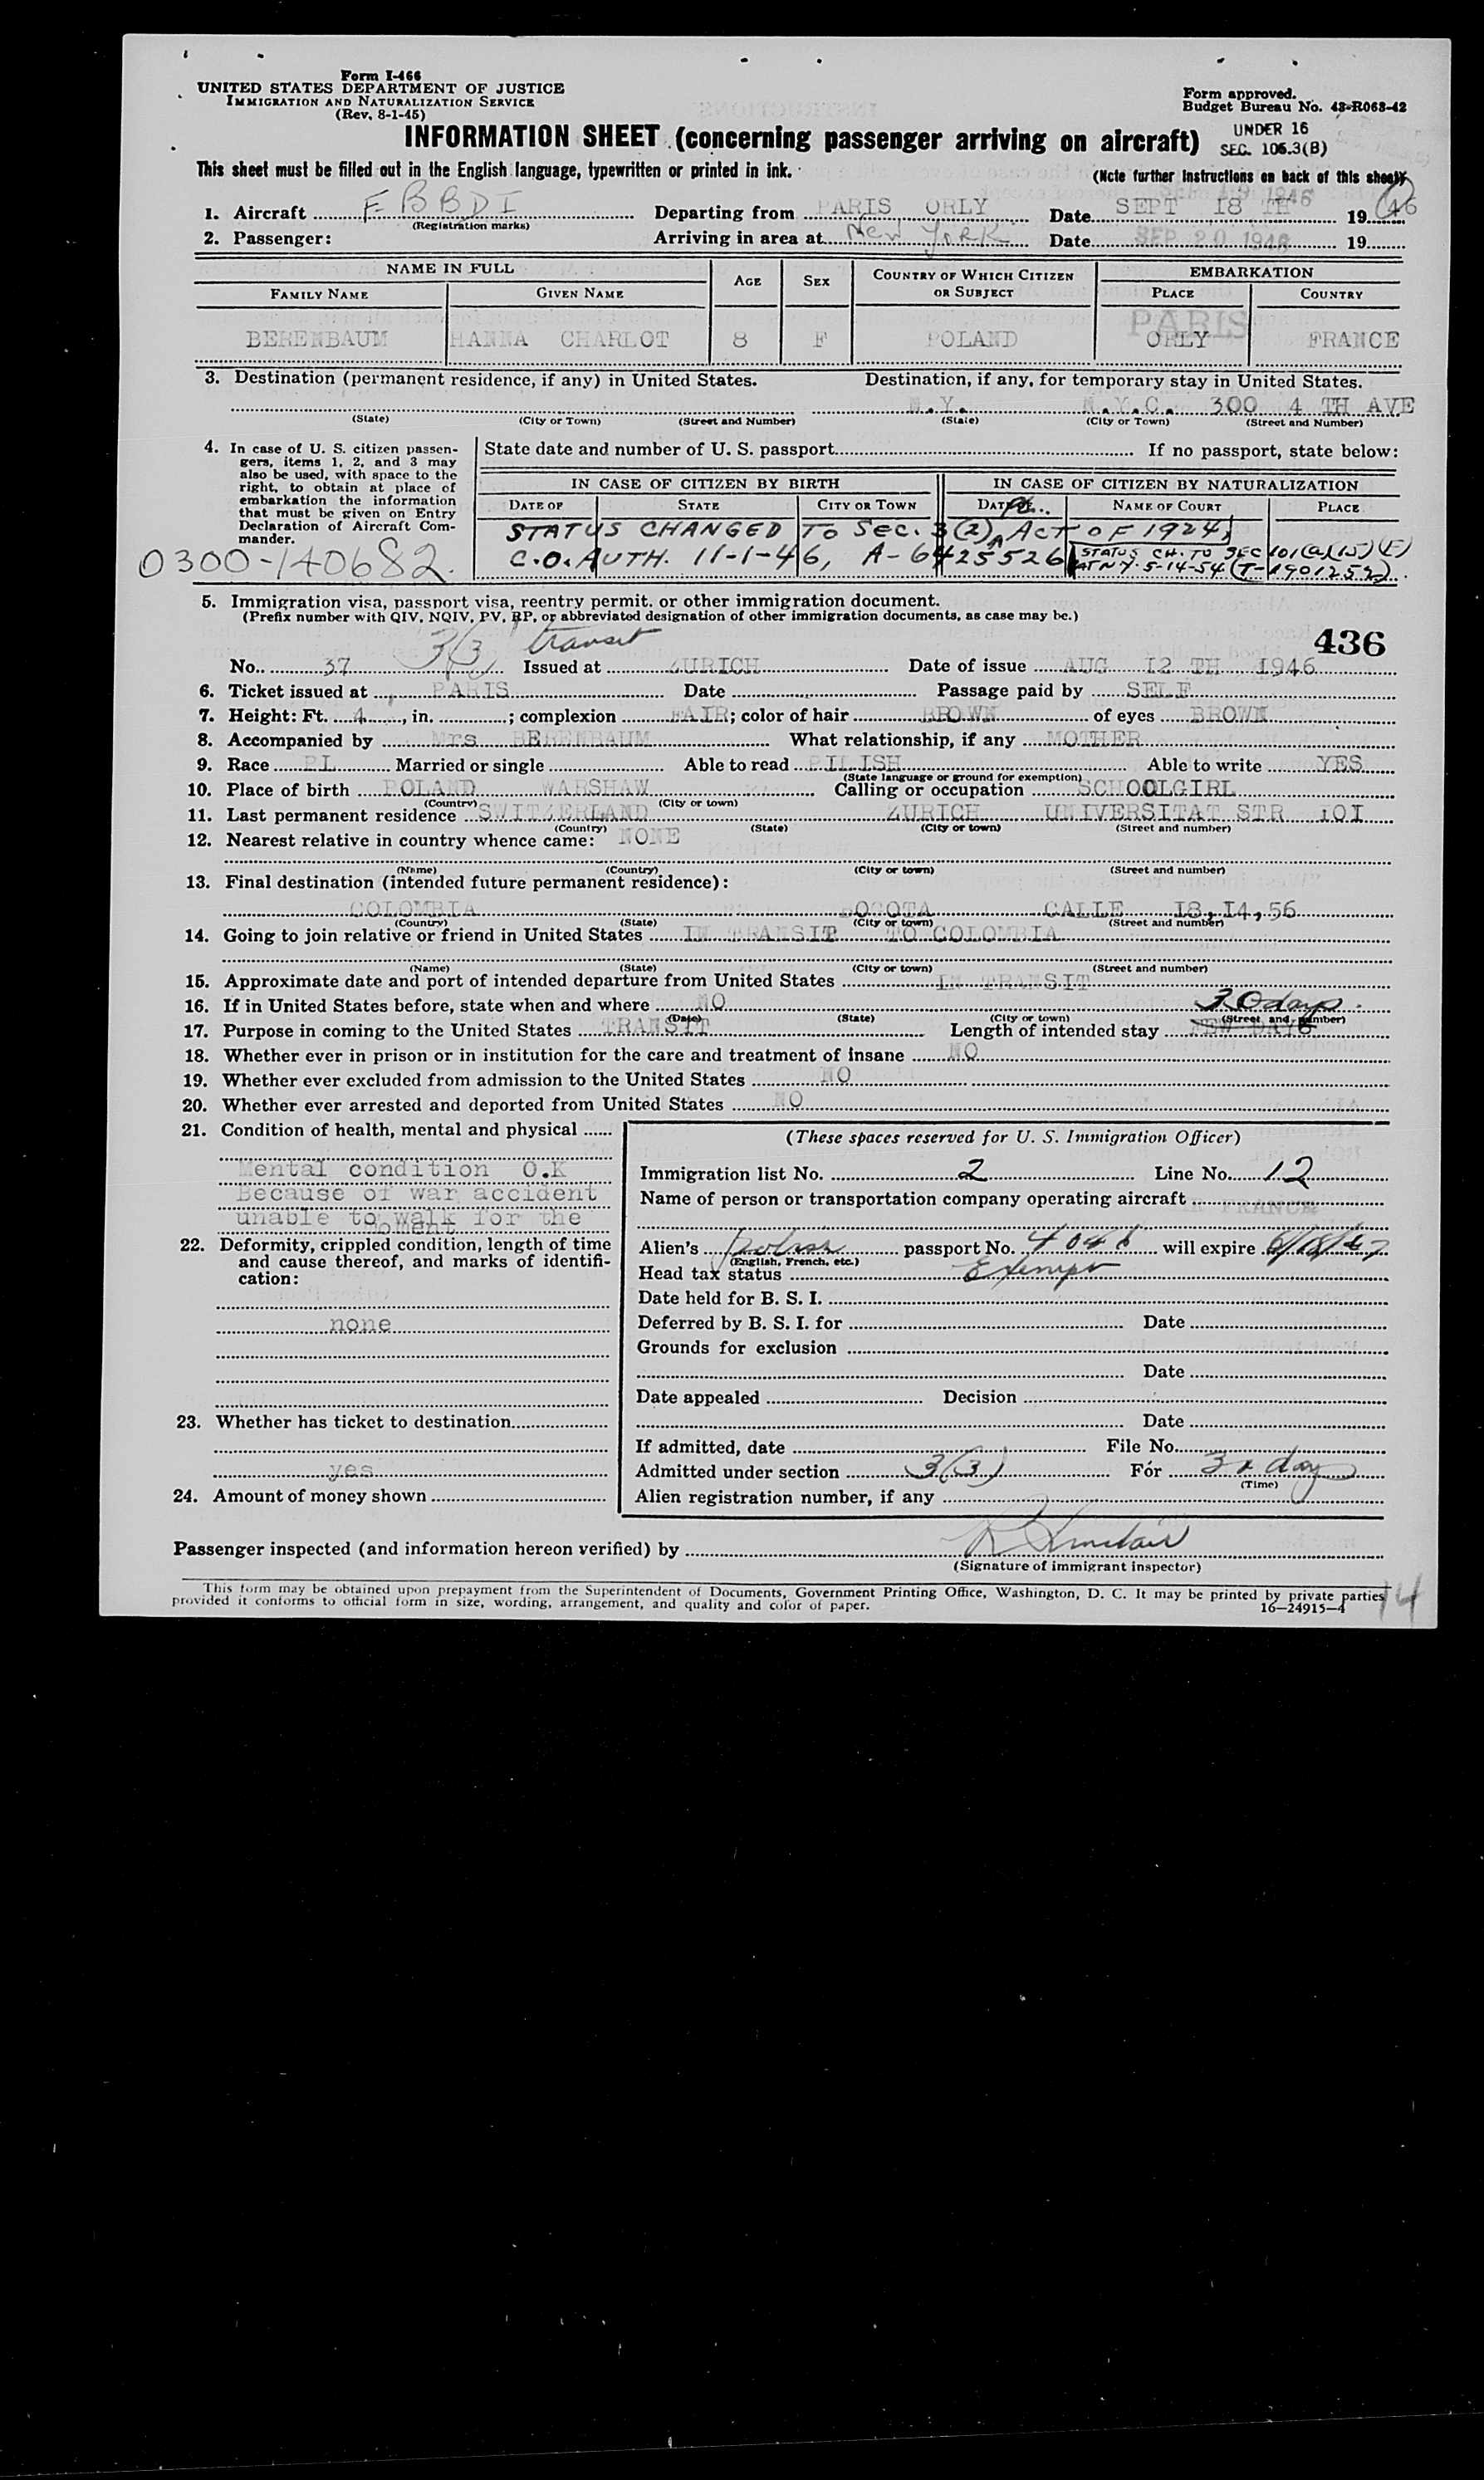 Form I-466
UNITED STATES DEPARTMENT OF JUSTICE
IMMIGRATION AND NATURALIZATION SERVICE
(Rev. 8-1-45)
Form approved.
Budget Bureau No. 43-R068-42
INFORMATION SHEET (concerning passenger arriving on aircraft)
UNDER 16
SEC. 106.3(B)
This sheet must be filled out in the English language, typewritten or printed in ink.
(Note further instructions on back of this sheet)
1. Aircraft F BBDI Departing from PARIS ORLY Date SEPT 18 TH 1946
(Registration marks)
2. Passenger: Arriving in area at New York Date SEP 20 1946 19
NAME IN FULL AGE SEX COUNTRY OF WHICH CITIZEN OR SUBJECT EMBARKATION
FAMILY NAME GIVEN NAME PLACE COUNTRY
PARIS
BERENBAUM HANNA CHARLOT 8 F POLAND ORLY FRANCE
3. Destination (permanent residence, if any) in United States. Destination, if any, for temporary stay in United States.
N.Y. N.Y.C. 300 4 TH AVE
(State) (City or Town) (Street and Number) (State) (City or Town) (Street and Number)
4. In case of U. S. citizen passengers, items 1, 2, and 3 may also be used, with space to the right, to obtain at place of embarkation the information that must be given on Entry Declaration of Aircraft Commander.
State date and number of U. S. passport If no passport, state below:
IN CASE OF CITIZEN BY BIRTH IN CASE OF CITIZEN BY NATURALIZATION
DATE OF STATE CITY OR TOWN DATE NAME OF COURT PLACE
STATUS CHANGED TO SEC. 3(2) ACT OF 1924,
C.O. AUTH. 11-1-46, A-6425526
STATUS CH. TO SEC 101(a)(15)(E)
AT N.Y. 5-14-54 (T-1901252)
0300-140682.
5. Immigration visa, passport visa, reentry permit, or other immigration document.
(Prefix number with QIV, NQIV, PV, RP, or abbreviated designation of other immigration documents, as case may be.)
436
3(3) transit
No. 37 Issued at ZURICH Date of issue AUG 12 TH 1946
6. Ticket issued at PARIS Date Passage paid by SELF
7. Height: Ft. 4, in. ; complexion FAIR; color of hair BROWN of eyes BROWN
8. Accompanied by Mrs BERENBAUM What relationship, if any MOTHER
9. Race PL Married or single Able to read PILISH Able to write YES
(State language or ground for exemption)
10. Place of birth POLAND WARSHAW Calling or occupation SCHOOLGIRL
(Country) (City or town)
11. Last permanent residence SWITZERLAND ZURICH UNIVERSITAT STR 101
(Country) (State) (City or town) (Street and number)
12. Nearest relative in country whence came: NONE
(Name) (Country) (City or town) (Street and number)
13. Final destination (intended future permanent residence):
COLOMBIA BOGOTA CALLE 18,14,56
(Country) (State) (City or town) (Street and number)
14. Going to join relative or friend in United States IN TRANSIT TO COLOMBIA
(Name) (State) (City or town) (Street and number)
15. Approximate date and port of intended departure from United States IN TRANSIT
16. If in United States before, state when and where NO
(Date) (State) (City or town) (Street and number)
30 days
17. Purpose in coming to the United States TRANSIT Length of intended stay FEW DAYS
18. Whether ever in prison or in institution for the care and treatment of insane NO
19. Whether ever excluded from admission to the United States NO
20. Whether ever arrested and deported from United States NO
21. Condition of health, mental and physical
Mental condition O.K
Because of war accident
unable to walk for the
moment
22. Deformity, crippled condition, length of time and cause thereof, and marks of identification:
none
23. Whether has ticket to destination
yes
24. Amount of money shown
(These spaces reserved for U. S. Immigration Officer)
Immigration list No. 2 Line No. 12
Name of person or transportation company operating aircraft
AIR FRANCE
Alien's Polish passport No. 4046 will expire 6/18/47
(English, French, etc.)
Head tax status Exempt
Date held for B. S. I.
Deferred by B. S. I. for Date
Grounds for exclusion
Date
Date appealed Decision
Date
If admitted, date File No.
Admitted under section 3(3) For 30 days
(Time)
Alien registration number, if any
Passenger inspected (and information hereon verified) by R Sinclair
(Signature of immigrant inspector)
This form may be obtained upon prepayment from the Superintendent of Documents, Government Printing Office, Washington, D. C. It may be printed by private parties
provided it conforms to official form in size, wording, arrangement, and quality and color of paper.
16—24915-4
14